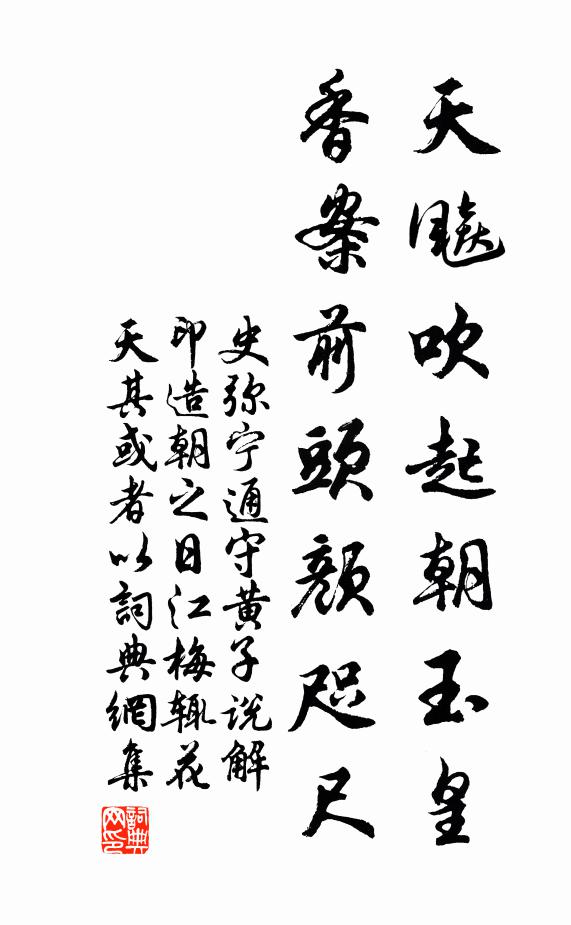 天飈吹起朝玉皇
香案前頭顏咫尺
史弥宁通守黄子说解
印造朝之日江梅辄花
天其或者以詞典網集
詞典网印